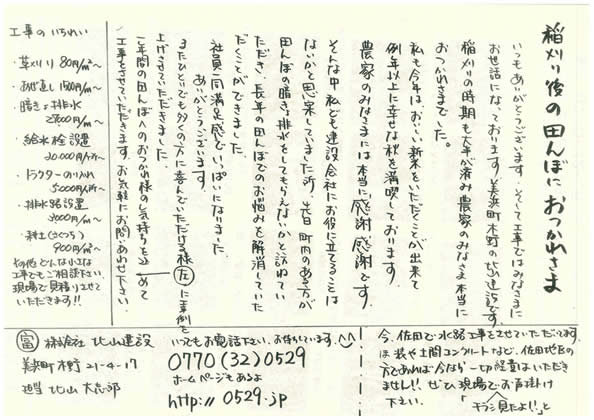 稲刈り後の田んぼに おつかれさま
いつもありがとうございます。そして工事ではみなさまに
お世話になっております。美浜町木野の北山建設です。
稲刈りの時期も大半が済み農家のみなさま本当に
おつかれさまでした。
私も今年は、おいしい新米をいただくことが出来て
例年以上に幸せな秋を満喫しております。
農家のみなさまには本当に感謝、感謝です。
そんな中 私ども建設会社にお役に立てることは
ないかと思案していました所、先日町内のある方が
田んぼの暗きょ排水をしてもらえないかと訪ねてい
ただき、長年の田んぼでのお悩みを解消していた
だくことができました。
ありがとうございます。
社員一同満足感でいっぱいになりました。
またひとりでも多くの方に喜んでいただける様 左 に
上げさせていただきました。
1年間の田んぼへのおつかれ様の気持ちを込めて
工事をさせていただきます。お気軽にお問い合わせ下さい。
工事のいちれい
・草刈り 80円/m²〜
・あぜ直し 1500円/m〜
・暗きょ排水
2800円/m〜
・給水栓設置
20.000円/1ヶ所〜
・トラクターの入れ
5000円/1ヶ所〜
・排水路設置
4000円/m〜
・耕土(さくつち)
900円/m²〜
その他どんな小さな
工事でもご相談下さい。
現場で見積りさせて
いただきます!!
富 株式会社 北山建設
美浜町木野 21-4-17
担当 北山 大志郎
いつでもお電話下さい。お待ちしています。^^
0770(32)0529
ホームページもあるよ
http://0529.jp
今、佐田で水路工事をさせていただいてます。
ほ装や土間コンクリートなど、佐田地区の
方であれば今なら一切経費はいただき
ません!! ぜひ現場でお声掛け
下さい。
チラシ見たよ!! と